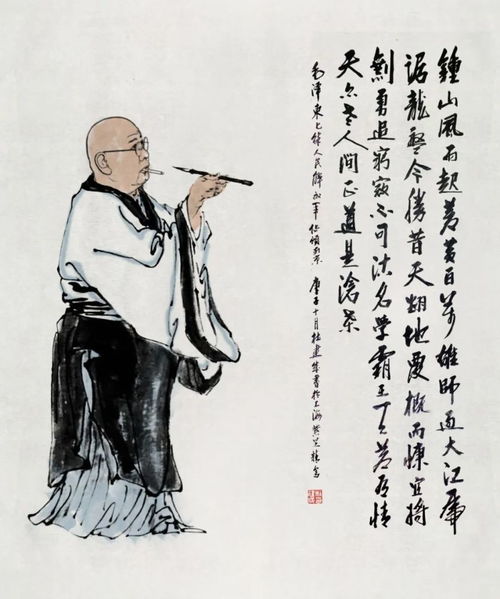 鍾山風雨起蒼黄百萬雄師過大江虎
踞龍盤今勝昔天翻地覆慨而慷宜將
剩勇追窮寇不可沽名學霸王天若有情
天亦老人間正道是滄桑
毛澤東七律人民解放軍佔領南京 庚子十月杜建書於上海